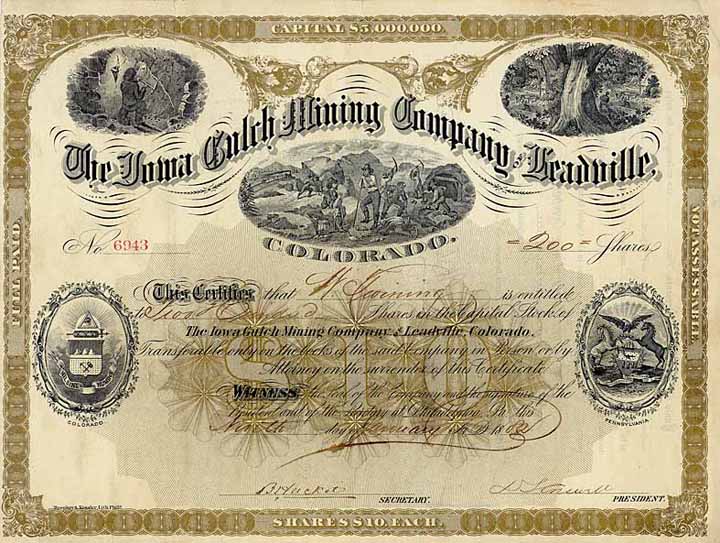 CAPITAL $5,000,000.
The Iowa Gulch Mining Company of Leadville,
COLORADO.
No. 6943 =200= Shares
FULL PAID.
NOT ASSESSABLE.
This Certifies that is entitled
to Two Hundred Shares in the Capital Stock of
The Iowa Gulch Mining Company of Leadville, Colorado.
Transferable only on the books of the said Company in Person or by
Attorney on the surrender of this Certificate
$10
WITNESS the Seal of the Company and the signature of the
President and of the Secretary at Philadelphia, Pa. this
Ninth day of January A.D. 188
COLORADO.
PENNSYLVANIA.
SECRETARY.
PRESIDENT.
SHARES $10. EACH.